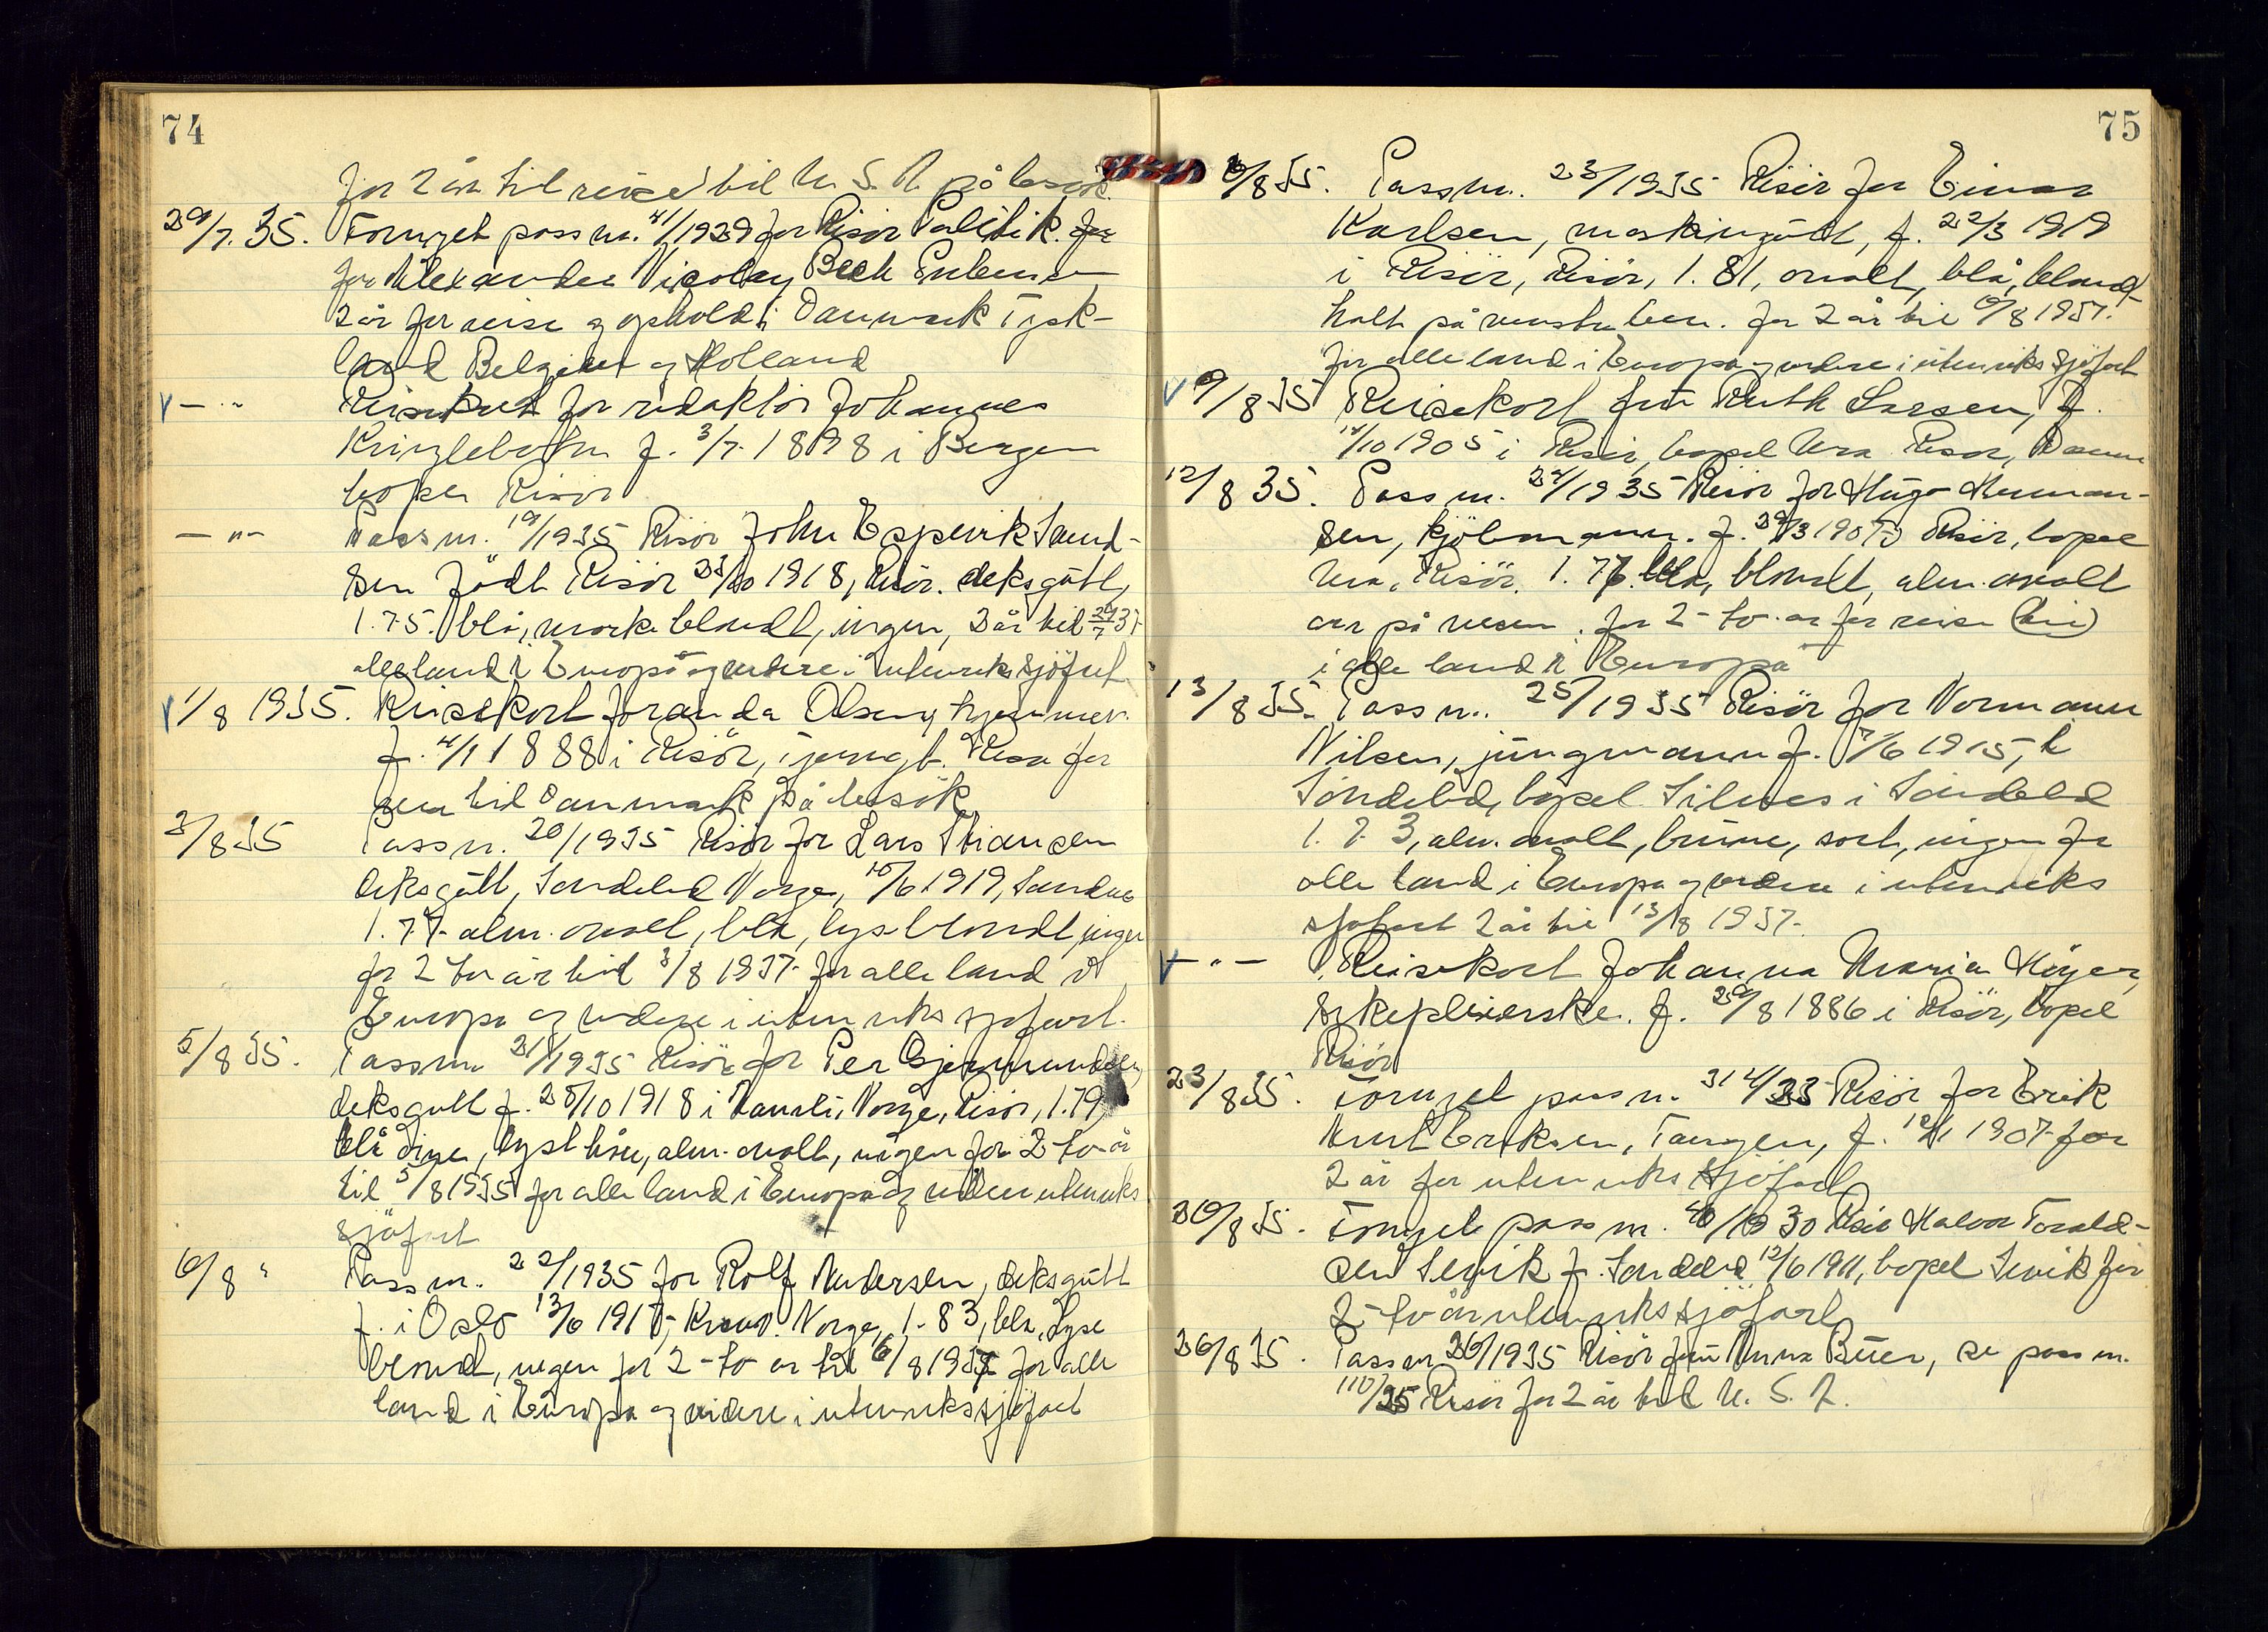 74
for 2 år til reise til U. S. A på besök.
29/7. 35. Fornyet pass nr. 41/1929 for Risör Politik. for
for Alexander Nicolay Bech
2 år for reise og ophold i Danmark Tysk-
land Belgien og Holland
- " - Reisekort for redaktör Johannes
Kringlebotn f. 3/7. 1898 i Bergen
bopel Risör
- " - Pass nr. 19/1935 Risör John Espevik Sand-
sen Födt Risör 23/10 1918, Risör. deksgutt,
1.75. blå, mörke blondt, ingen, 2 år til 29/7 37
alle land i Europa og videre i utenriks sjöfart
1/8 1935. Reisekort for anda Olsen, hjemmev.
f. 4/1 1888 i Risör, Risör for
reise til Danmark på besök
3/8 35 Pass nr. 20/1935 Risör for Lars Stiansen
deksgutt, Söndeled Norge, 10/6 1919, Sandnes
1.77- alm. ovalt, blå, lys blondt, ingen
for 2 to år til 3/8 1937- for alle land i
Europa og videre i utenriks sjöfart.
5/8 35. Pass nr 21/1935 Risör for Per Gjermundsen,
deksgutt f. 28/10 1918 i Norge, Risör, 1.79,
blå öine, lyst hår, alm. ovalt, ingen for 2-to-år
til 5/8 1935 for alle land i Europa og videre utenriks
sjöfart
6/8 " Pass nr. 22/1935 for Rolf Andersen, deksgutt
f. i Oslo 13/6 1917, Norge, 1.83, blå, Lyse
blond, ingen for 2-to- år til 6/8 1937 for alle
land i Europa og videre i utenriks sjöfart
75
6/8 35. Pass nr. 23/1935 Risör for Einar
Karlsen, maskingutt, f. 22/3 1919
i Risör, Risör, 1.81, ovalt, blå, blond
halt på venstre ben. for 2 år til 6/8 1937.
for alle land i Europa og videre i utenriks sjöfart
9/8 35 Reisekort frü Ruth Larsen, f.
11/10 1905 i Risör, bopel Ura Risör, Danm
12/8 35. Pass nr. 24/1935 Risör for Hugo Herman-
sen, kjöbmann. f. 29/3 1907 Risör, bopel
Ura, Risör. 1.76. blå, blondt, alm. ovalt
arr på nesen. for 2-to-år for reise
i alle land i Europa
13/8 35. Pass nr. 25/1935 Risör for Normann
Nilsen, jüngmann f. 7/6 1915,
Söndeled, bopel Silnes i Söndeled
1.73, alm. ovalt, brüne, sort, ingen for
alle land i Europa og videre i utenriks
sjöfart 2 år til 13/8 1937-
- " - Reisekort Johanna Maria Höyer,
sykepleierske. f. 29/8 1886 i Risör, bopel
Risör
23/8 35. Fornyet pass nr. 314/33 Risör for Erik
Knut Eriksen, Tangen, f. 12/1 1907- for
2 år for utenriks sjöfart
30/8 35. Fornyet pass nr. 40/1930 Risör Halvor Torald-
sen Sevik f. Söndeled 12/6 1911, bopel Sevik for
2-to år utenriks sjöfart
36/8 35. Pass nr 26/1935 Risör frü Anna Büer, se pass nr.
110/25 Risör for 2 år til U. S. A.